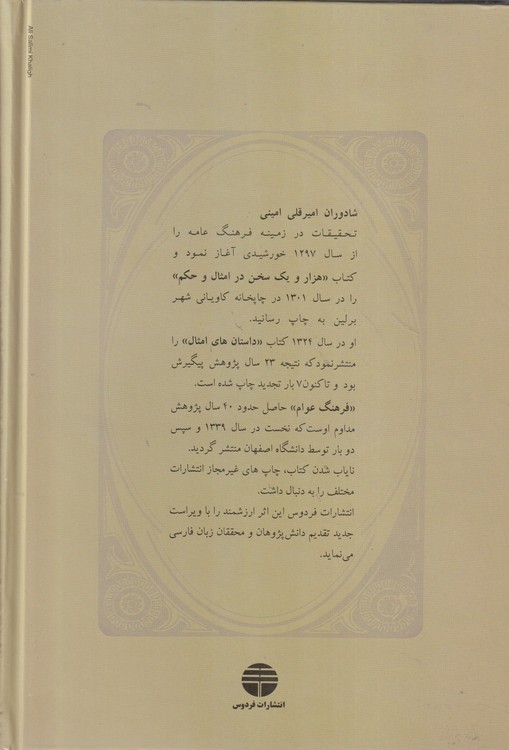 Ali Salimi Khaligh
شادوران امیرقلی امینی
تحقیقات در زمینه فرهنگ عامه را
از سال ۱۲۹۷ خورشیدی آغاز نمود و
کتاب «هزار و یک سخن در امثال و حکم»
را در سال ۱۳۰۱ در چاپخانه کاویانی شهر
برلین به چاپ رسانید.
او در سال ۱۳۲۴ کتاب «داستان های امثال» را
منتشر نمود که نتیجه ۲۳ سال پژوهش پیگیرش
بود و تاکنون ۷ بار تجدید چاپ شده است.
«فرهنگ عوام» حاصل حدود ۴۰ سال پژوهش
مداوم اوست که نخست در سال ۱۳۳۹ و سپس
دو بار توسط دانشگاه اصفهان منتشر گردید.
نایاب شدن کتاب، چاپ های غیرمجاز انتشارات
مختلف را به دنبال داشت.
انتشارات فردوس این اثر ارزشمند را با ویراست
جدید تقدیم دانش‌پژوهان و محققان زبان فارسی
می‌نماید.
انتشارات فردوس